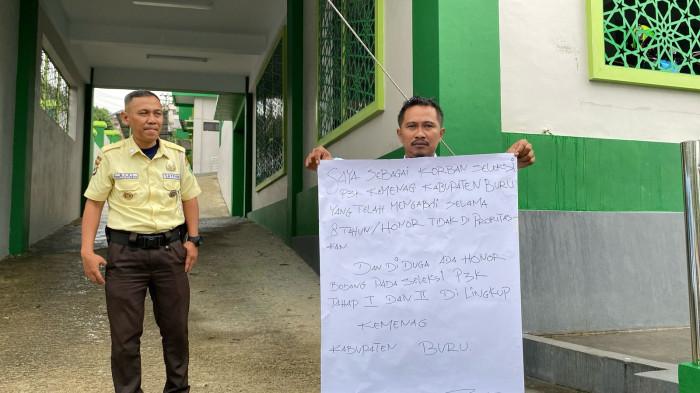 SAYA SEBAGAI KORBAN SELEKSI
P3K KEMENAG KABUPATEN BURU
YANG TELAH MENGABDI SELAMA
8 TAHUN/HONOR TIDAK DI PRIORITAS-
KAN
DAN DI DUGA ADA HONOR
BODONG PADA SELEKSI P3K
TAHAP I DAN II DI LINGKUP
KEMENAG
KABUPATEN BURU.
SATPAM